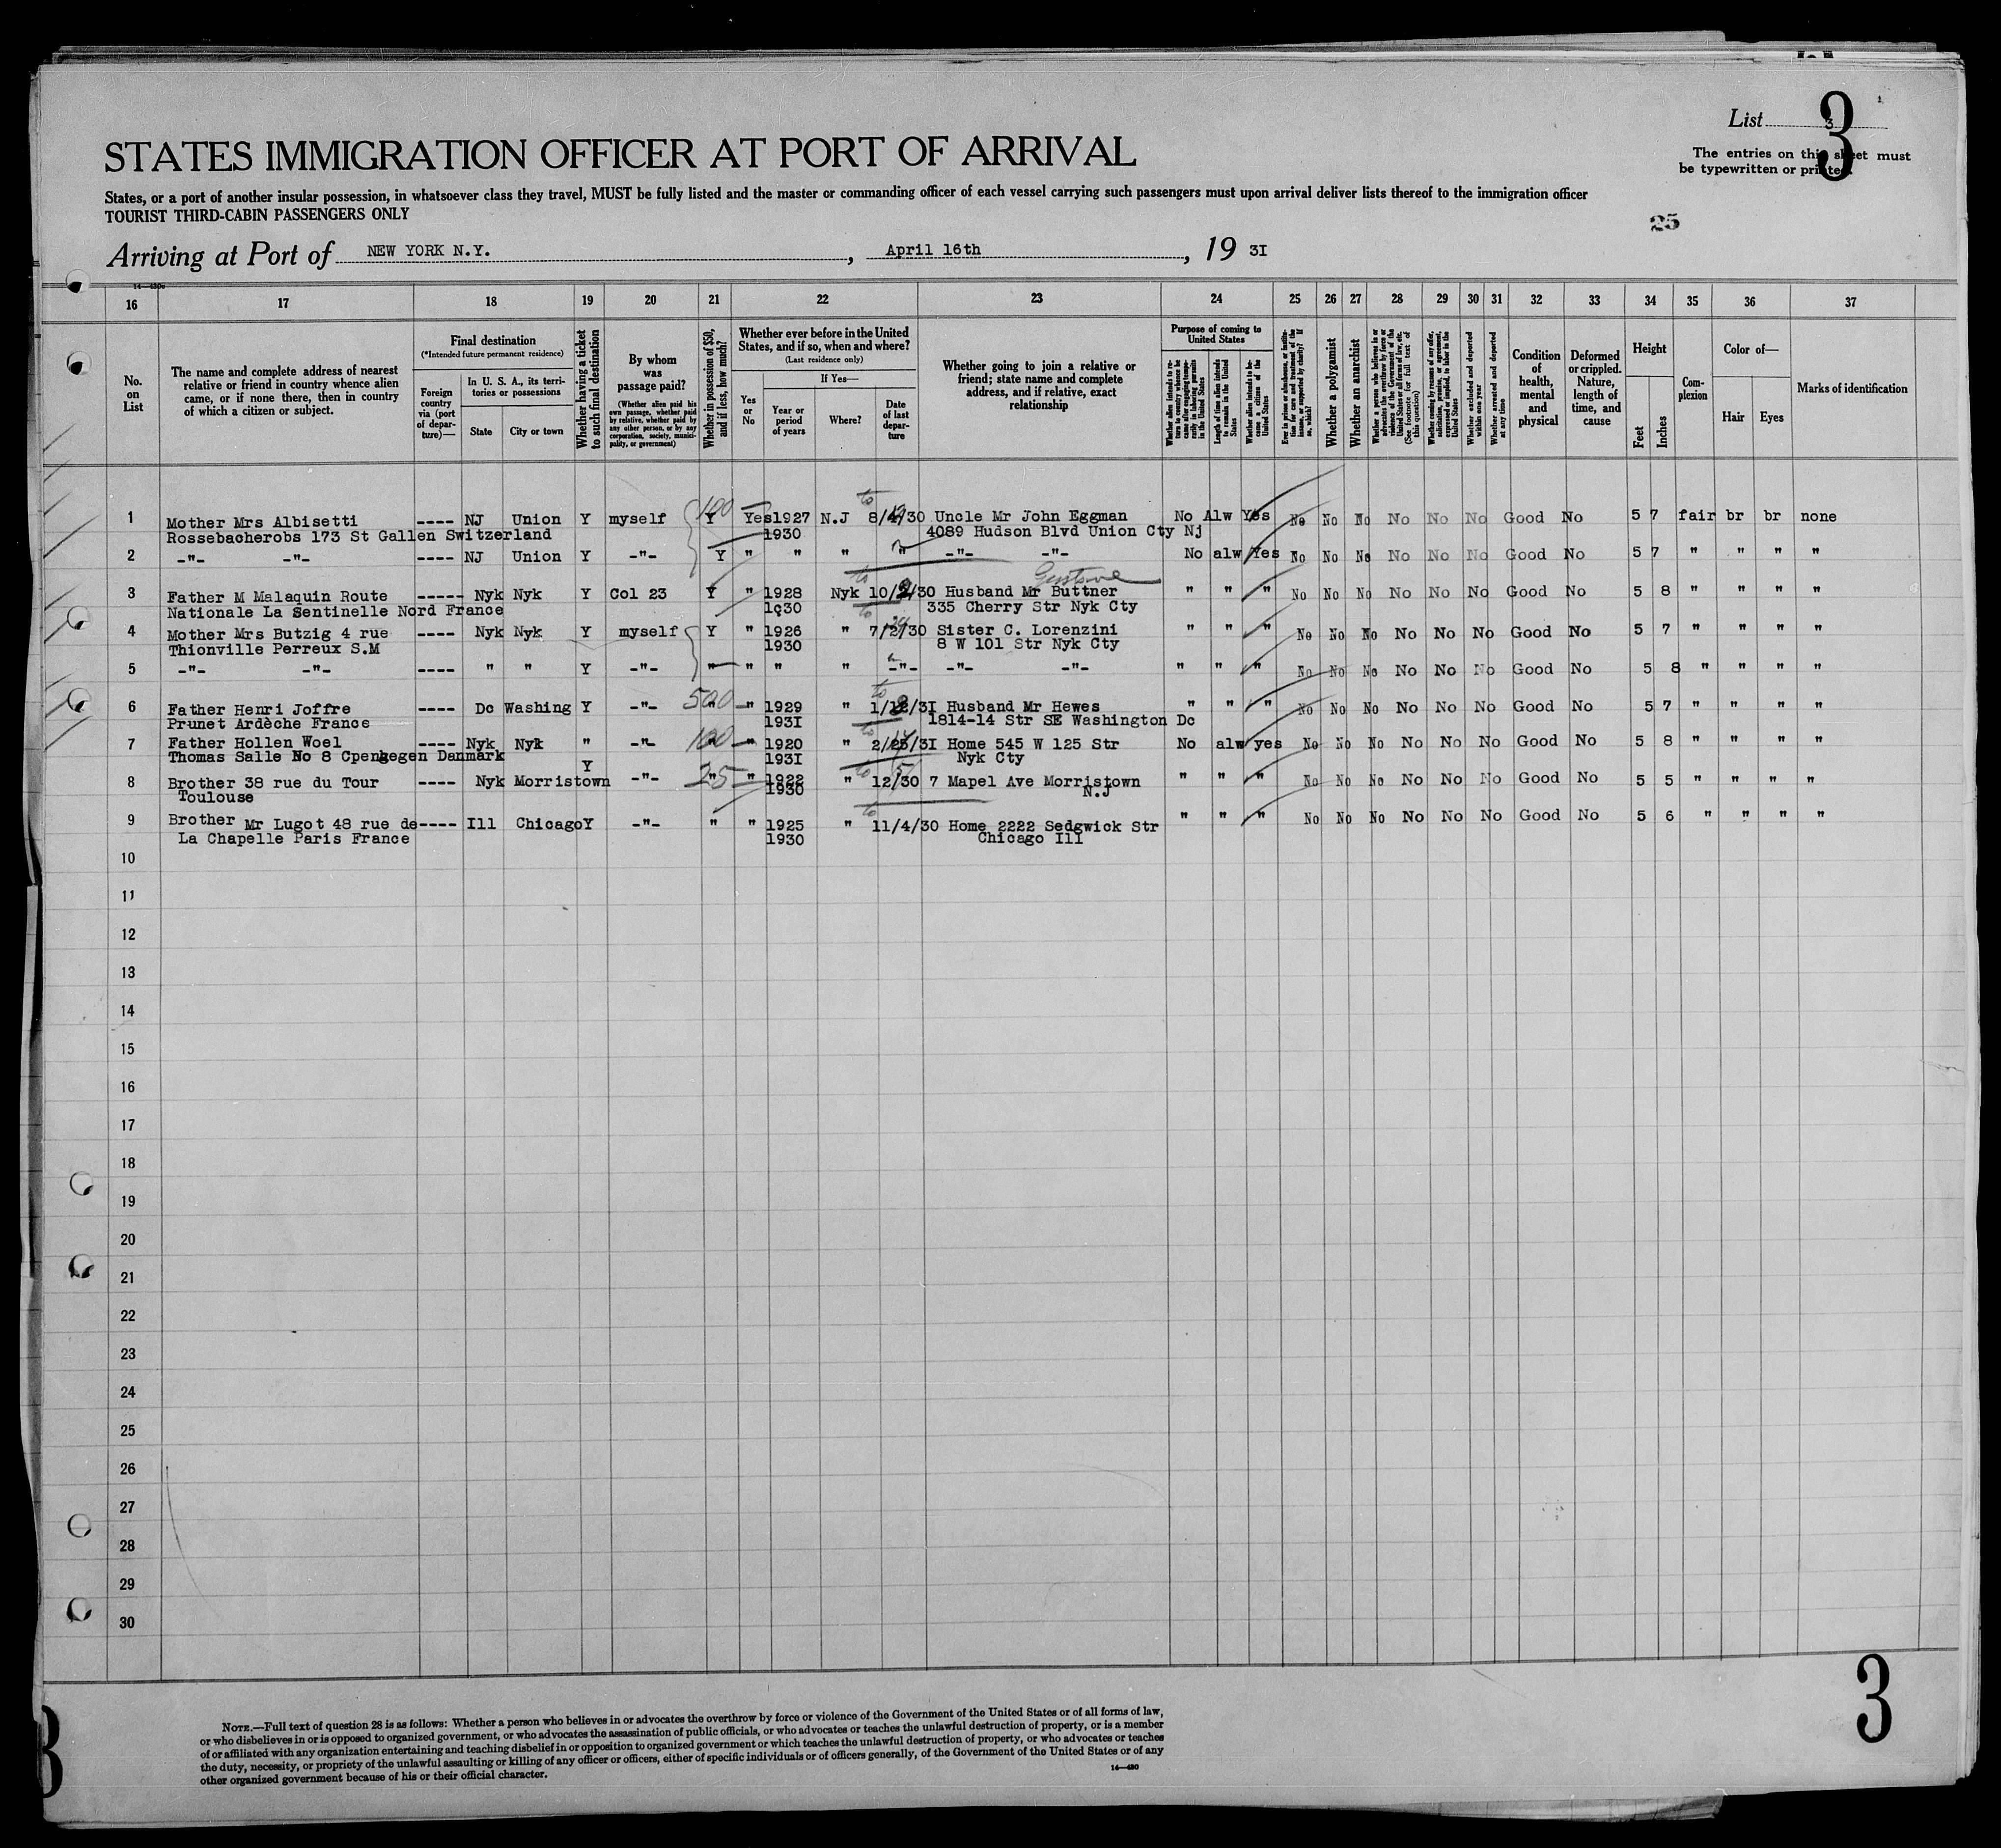 List 3
3
The entries on this sheet must
be typewritten or printed.
STATES IMMIGRATION OFFICER AT PORT OF ARRIVAL
States, or a port of another insular possession, in whatsoever class they travel, MUST be fully listed and the master or commanding officer of each vessel carrying such passengers must upon arrival deliver lists thereof to the immigration officer
TOURIST THIRD-CABIN PASSENGERS ONLY
25
Arriving at Port of NEW YORK N.Y. , April 16th , 19 3I
16 17 18 19 20 21 22 23 24 25 26 27 28 29 30 31 32 33 34 35 36 37
No. on List
The name and complete address of nearest relative or friend in country whence alien came, or if none there, then in country of which a citizen or subject.
Final destination
(*Intended future permanent residence)
Foreign country via (port of departure)—
In U. S. A., its territories or possessions
State
City or town
Whether having a ticket to such final destination
By whom was passage paid?
(Whether alien paid his own passage, whether paid by relative, whether paid by any other person, or by any corporation, society, municipality, or government)
Whether in possession of $50, and if less, how much?
Whether ever before in the United States, and if so, when and where?
(Last residence only)
Yes or No
If Yes—
Year or period of years
Where?
Date of last departure
Whether going to join a relative or friend; state name and complete address, and if relative, exact relationship
Purpose of coming to United States
Whether alien intends to return to country whence he came after engaging temporarily in laboring pursuits in the United States
Length of time alien intends to remain in the United States
Whether alien intends to become a citizen of the United States
Ever in prison or almshouse, or institution for care and treatment of the insane, or supported by charity? If so, which?
Whether a polygamist
Whether an anarchist
Whether a person who believes in or advocates the overthrow by force or violence of the Government of the United States or all forms of law, etc. (See footnote for full text of this question)
Whether coming by reason of any offer, solicitation, promise, or agreement, expressed or implied, to labor in the United States
Whether excluded and deported within one year
Whether arrested and deported at any time
Condition of health, mental and physical
Deformed or crippled. Nature, length of time, and cause
Height
Feet
Inches
Complexion
Color of—
Hair
Eyes
Marks of identification
1 Mother Mrs Albisetti ---- NJ Union Y myself Y 100 Yes 1927 N.J 8/ /30 Uncle Mr John Eggman No Alw Yes No No No No No No Good No 5 7 fair br br none
Rossebacherobs 173 St Gallen Switzerland 1930 4089 Hudson Blvd Union Cty Nj
2 -"- -"- ---- NJ Union Y -"- Y " " " " -"- -"- No alw Yes No No No No No No Good No 5 7 " " " "
Gustave
3 Father M Malaquin Route ----- Nyk Nyk Y Col 23 Y " 1928 Nyk 10/ /30 Husband Mr Buttner " " " No No No No No No Good No 5 8 " " " "
Nationale La Sentinelle Nord France 1930 335 Cherry Str Nyk Cty
4 Mother Mrs Butzig 4 rue ---- Nyk Nyk Y myself Y " 1926 " 7/ /30 Sister C. Lorenzini " " " No No No No No No Good No 5 7 " " " "
Thionville Perreux S.M 1930 8 W 101 Str Nyk Cty
5 -"- -"- ---- " " Y -"- " " " " -"- -"- -"- " " " No No No No No No Good No 5 8 " " " "
6 Father Henri Joffre ---- Dc Washing Y -"- 500 " " 1929 " 1/ /3I Husband Mr Hewes " " " No No No No No No Good No 5 7 " " " "
Prunet Ardèche France 193I 1814-14 Str SE Washington Dc
7 Father Hollen Woel ---- Nyk Nyk " -"- 100 " " 1920 " 2/ /3I Home 545 W 125 Str No alw yes No No No No No No Good No 5 8 " " " "
Thomas Salle No 8 Cpenhegen Danmark 193I Nyk Cty
8 Brother 38 rue du Tour ---- Nyk Morristown Y -"- 25 " " 1922 " 12/30 7 Mapel Ave Morristown " " " No No No No No No Good No 5 5 " " " "
Toulouse 1930 N.J
9 Brother Mr Lugot 48 rue de ---- Ill Chicago Y -"- " " 1925 " 11/4/30 Home 2222 Sedgwick Str " " " No No No No No No Good No 5 6 " " " "
La Chapelle Paris France 1930 Chicago Ill
10
11
12
13
14
15
16
17
18
19
20
21
22
23
24
25
26
27
28
29
30
3
NOTE.—Full text of question 28 is as follows: Whether a person who believes in or advocates the overthrow by force or violence of the Government of the United States or of all forms of law,
or who disbelieves in or is opposed to organized government, or who advocates the assassination of public officials, or who advocates or teaches the unlawful destruction of property, or is a member
of or affiliated with any organization entertaining and teaching disbelief in or opposition to organized government or which teaches the unlawful destruction of property, or who advocates or teaches
the duty, necessity, or propriety of the unlawful assaulting or killing of any officer or officers, either of specific individuals or of officers generally, of the Government of the United States or of any
other organized government because of his or their official character.
14—430